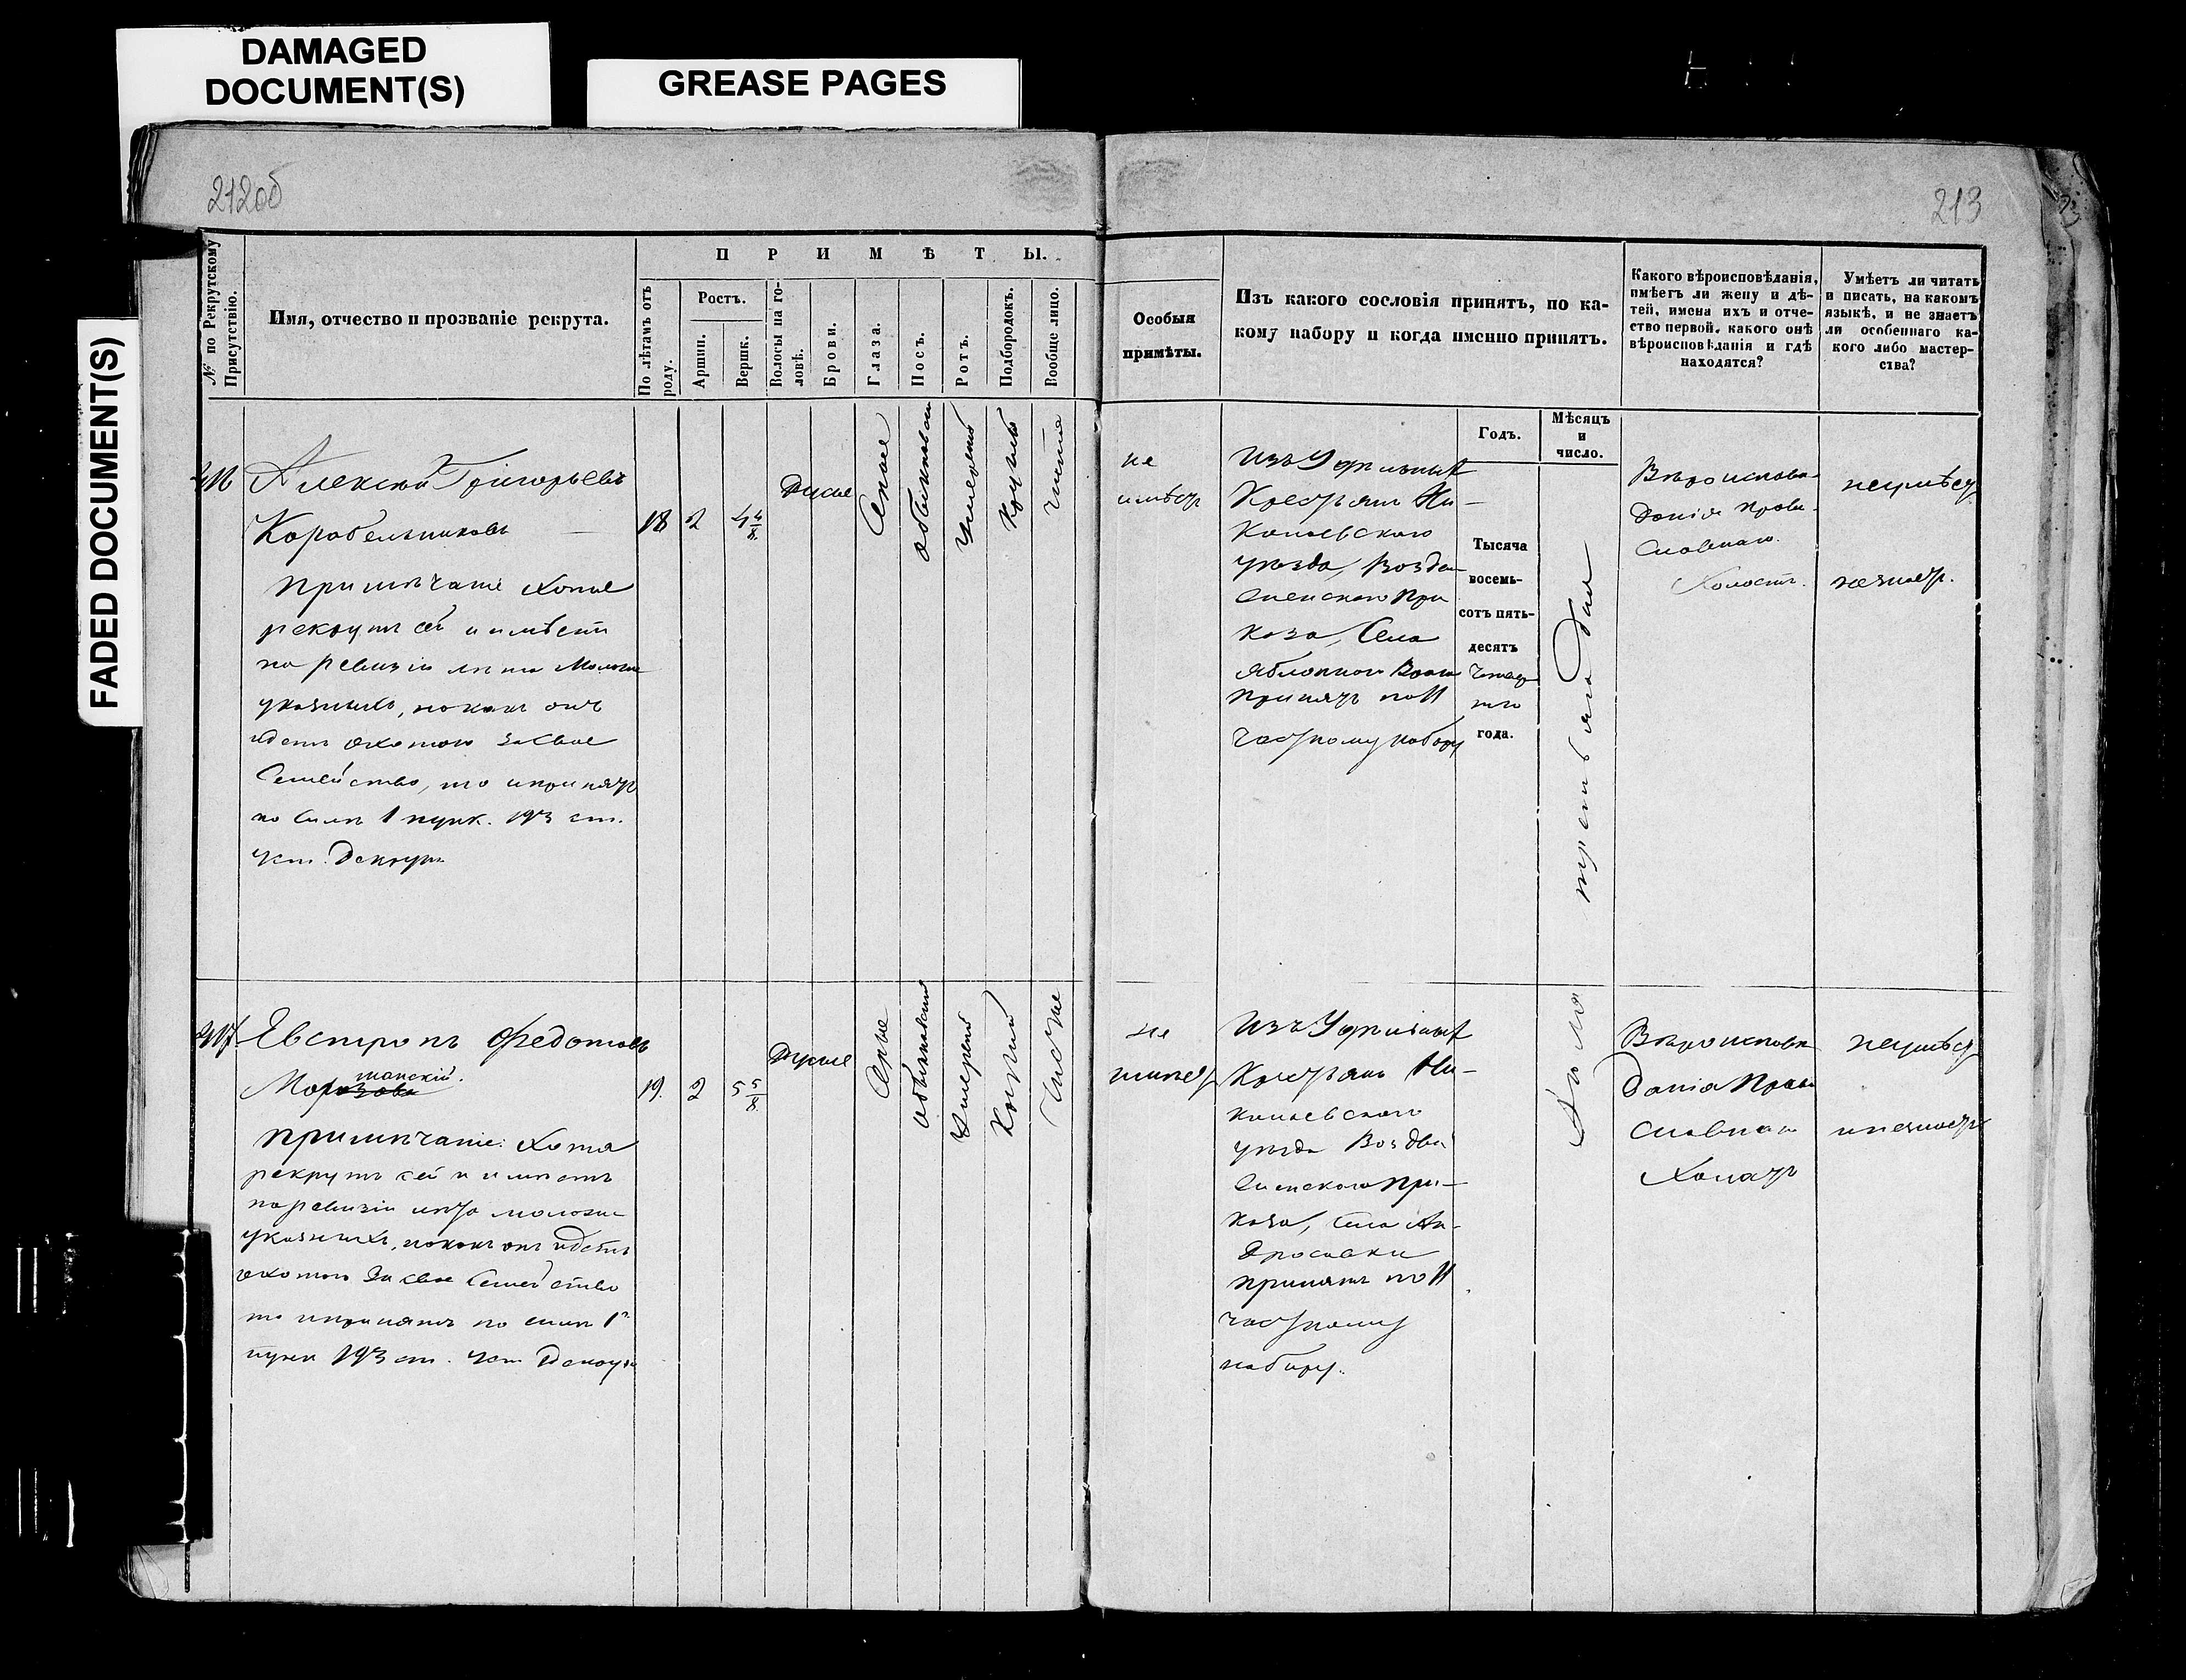 DAMAGED
DOCUMENT(S)
GREASE PAGES
FADED DOCUMENT(S)
212об
213
№ по Рекрутскому Присутствію.
Имя, отчество и прозваніе рекрута.
ПРИМѢТЫ.
По лѣтамъ отъ роду.
Ростъ.
Аршин.
Вершк.
Волосы на го-
ловѣ.
Брови.
Глаза.
Носъ.
Ротъ.
Подбородокъ.
Вообще лицо.
Особыя
примѣты.
Изъ какого сословія принятъ, по ка-
кому набору и когда именно принятъ.
Годъ.
Мѣсяцъ
и
число.
Какого вѣроисповѣданія,
имѣетъ ли жену и дѣ-
тей, имена ихъ и отче-
ство первой, какого онѣ
вѣроисповѣданія и гдѣ
находятся?
Умѣетъ ли читать
и писать, на какомъ
языкѣ, и не знаетъ
ли особеннаго ка-
кого либо мастер-
ства?
Алексѣй Григорьевъ
Коробельниковъ
примѣчаніе Хотя
рекрутъ сей и имѣетъ
по ревизіи лѣта моложе
указныхъ, но какъ онъ
идетъ охотою за свое
Семейство, то и принятъ
по силѣ 1 пунк. 193 ст.
уст. рекрут.
18
2
4 4/8
Русые
Серые
обыкновен
умеренный
круглый
чистое
не
имѣет
Изъ Удельныхъ
Крестьян Ни-
колаевского
уѣзда, Воздви
женскаго При
каза, Села
Яблоннаго Врага
принятъ по 11
частному набору
Тысяча
восемь-
сотъ пять-
десятъ
четвер
таго
года.
третьяго дня
Вѣроиспове-
данія Право-
славнаго.
Холостъ.
неумѣет
не знает.
Евстропъ Федотовъ
Морозовъ
шанскій.
примѣчаніе: Хотя
рекрутъ сей и имѣетъ
по ревизіи лѣта моложе
указныхъ, но какъ онъ идетъ
охотою за свое Семейство
то и принятъ по силѣ 1го
пунк 193 ст. уст. рекрут
19.
2
5 5/8
Русые
Серые
обыкновенный
умеренный
Круглый
Чистое
не
имѣет
Изъ Удельныхъ
Крестьянъ Ни-
колаевскаго
уѣзда Воздви
женскаго При-
каза, села Ан-
дросовки
принятъ по 11
частному
набору.
Іюля
Вѣроисповѣ
данія Право
славнаго
Холостъ
неумѣет
и не знает